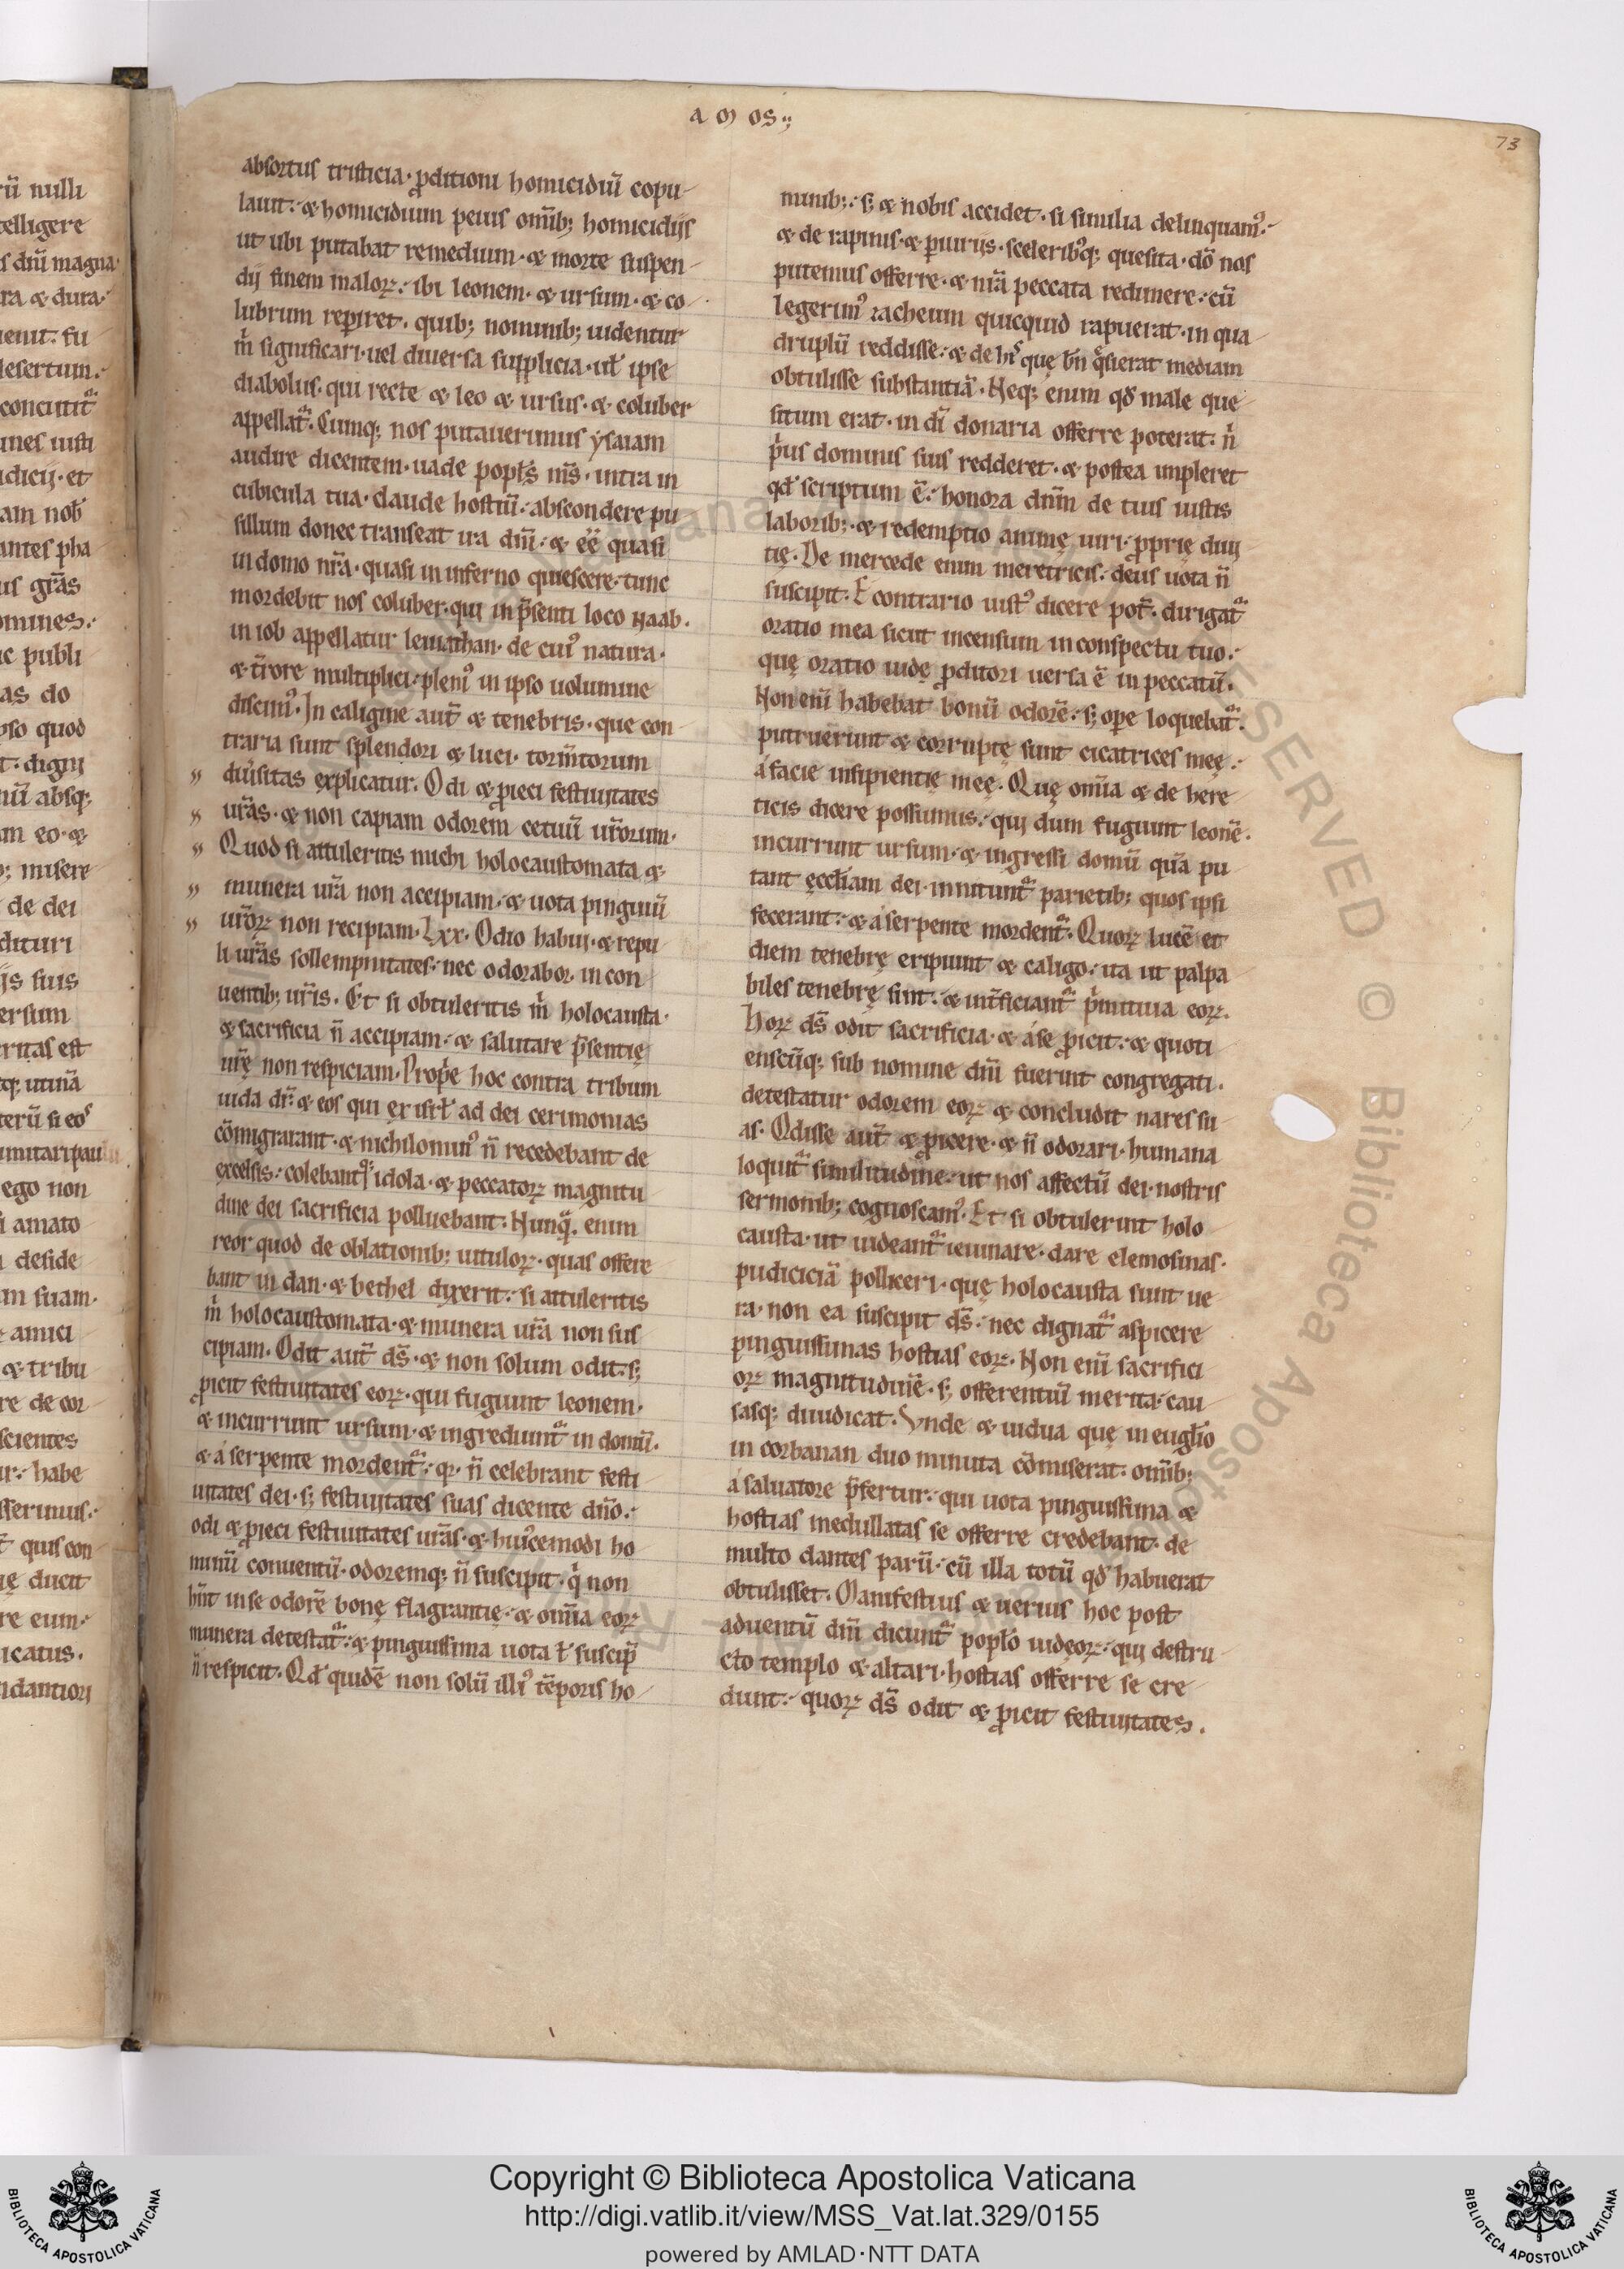 a m os
73
absortus tristicia· ꝓditioni homicidiū copu-
lauit: & homicidium peius omīb; homicidijs
ut ubi putabat remedium· & morte suspen-
dij finem maloꝝ: ibi leonem· & ursum· & co-
lubrum repiret. quib; nominib; uidentur
m̄ significari· uel diuersa supplicia· uł ipse
diabolus· qui recte & leo & ursus· & coluber
appellat᷑. Cumq; nos putauerimus ysaiam
audire dicentem· uade popl̄s m̄s· intra in
cubicula tua· claude hostiū: abscondere pu
sillum donec transeat ira dn̄i: & eē quasi
in domo nr̄a· quasi in inferno quiescere· tunc
mordebit nos coluber· qui in p̄senti loco naab·
in iob appellatur leuiathan· de cuiꝰ natura·
& t̄rore multiplici· pleniꝰ in ipso uolumine
discimꝰ. In caligine aut̄ & tenebris· que con
traria sunt splendori & luci· torm̄torum
diu̅sitas explicatur. Odi & ꝓieci festiuitates
ur̄as· & non capiam odorem cetuū ur̄orum·
Quod si attuleritis michi holocaustomata &
munera ur̄a non accipiam· & uota pinguiū
ur̄oꝝ non recipiam· Lxx· Odio habui· & repu
li ur̄as sollempnitates: nec odorabor in con
uentib; ur̄is. Et si obtuleritis m̄ holocausta·
& sacrificia n̄ accipiam: & salutare p̄sentię
ur̄ę non respiciam. Prop̄e hoc contra tribum
iuda dr̄: & eos qui ex isrł ad dei cerimonias
cōmigrarant· & nichilominꝰ n̄ recedebant de
excelsis: colebantq; idola· & peccatoꝝ magnitu
dine dei sacrificia polluebant: Nunq̄ enim
reor quod de oblationib; uituloꝝ· quas offere
bant in dan· & bethel dixerit: si attuleritis
m̄ holocaustomata· & munera ur̄a non sus
cipiam. Odit aut̄ ds̄· & non solum odit· s;
ꝓicit festiuitates eoꝝ· qui fugiunt leonem·
& incurrunt ursum· & ingrediunt᷑ in domū·
& a serpente mordent᷑: qꝛ n̄ celebrant festi
uitates dei· s; festiuitates suas dicente dn̄o:
odi & ꝓieci festiuitates ur̄as· & huiꝰcemodi ho
minū conuentū· odoremq; n̄ suscipit· q̇ non
hn̄t in se odorē bonę flagrantię: & omīa eoꝝ
munera detestat᷑: & pinguissima uota ł suscip̄
n̄ respicit· Qđ quidē non solū illiꝰ tēporis ho-
minib;: s; & nobis accidet· si similia delinquamꝰ:
& de rapinis· & piurijs· sceleribꝰq; quesita· dō nos
putemus offerre· & nr̄a peccata redimere: cū
legerimꝰ zacheum quicquid rapuerat· in qua
druplū reddisse: & de hiꝰs que bn̄ q̄sierat mediam
obtulisse substantiā. Neq; enim qđ male que
situm erat· in dī donaria offerre poterat· n̄
p̄us dominis suis redderet· & postea impleret
qđ scriptum ē: honora dnm̄ de tuis iustis
laborib;· & redemptio animę uiri· ꝓprię diui
tię. De mercede enim meretricis: deus uota n̄
suscipit. E contrario iustꝰ dicere pot̄· dirigat᷑
oratio mea sicut incensum in conspectu tuo:
quę oratio iudę ꝓditori uersa ē in peccatū.
Non eni̅ habebat bonū odorē: s; ope loquebat᷑·
putruerunt & corruptę sunt cicatrices meę:
a facie insipientię meę. Quę omīa & de here
ticis dicere possumus: qui dum fugiunt leonē·
incurrunt ursum· & ingressi domū quā pu
tant ęccl̄iam dei· innitunt᷑ parietib; quos ipsi
fecerant: & a serpente mordent᷑. Quoꝝ lucē et
diem tenebrę eripiunt & caligo: ita ut palpa
biles tenebrę sint: & int̄ficiant᷑ p̄mitiua eoꝝ.
Hoꝝ ds̄ odit sacrificia· & a se ꝓicit: & quoti
enscūq; sub nomine dn̄i fuerint congregati·
detestatur odorem eoꝝ & concludit nares su
as. Odisse aut̄ & ꝓicere· & n̄ odorari· humana
loquit᷑ similitudine: ut nos affectū dei· nostris
sermonib; cognoscamꝰ. Et si obtulerint holo
causta· ut uideant᷑ ieiunare· dare elemosinas·
pudiciciā polliceri· quę holocausta sunt ue
ra· non ea suscipit ds̄: nec dignat᷑ aspicere
pinguissimas hostias eoꝝ. Non eni̅ sacrifici
oꝝ magnitudinē· s; offerentiū merita· cau
sasq; diiudicat. Vnde & uidua quę in eugl̄io
in corbanan duo minuta cōmiserat· omīb;
a saluatore p̄fertur: qui uota pinguissima &
hostias medullatas se offerre credebant· de
multo dantes parū: cū illa totū qđ habuerat
obtulisset. Manifestius & uerius hoc post
aduentū dn̄i dicunt᷑ popl̄o iudęoꝝ: qui destru-
cto templo & altari· hostias offerre se cre
dunt: quoꝝ ds̄ odit & ꝓicit festiuitates.
Copyright © Biblioteca Apostolica Vaticana
http://digi.vatlib.it/view/MSS_Vat.lat.329/0155
powered by AMLAD·NTT DATA
BIBLIOTECA APOSTOLICA VATICANA
BIBLIOTECA APOSTOLICA VATICANA